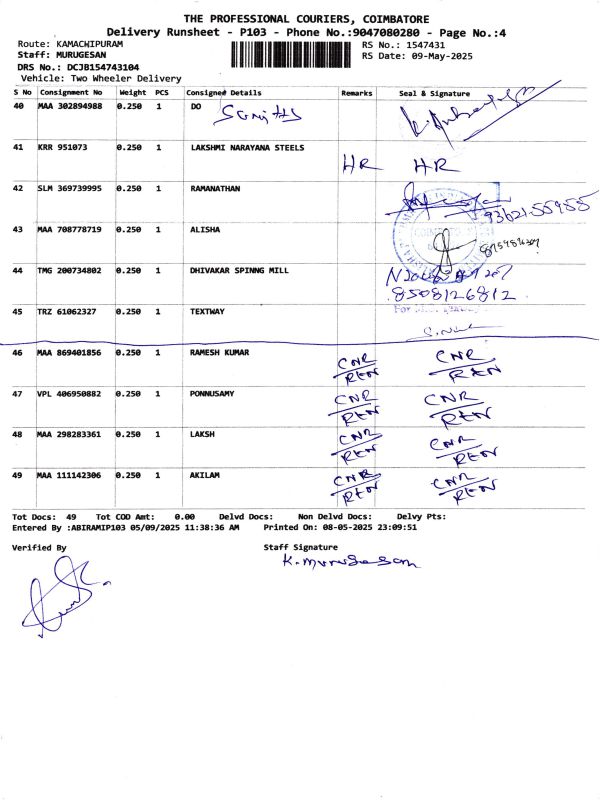 THE PROFESSIONAL COURIERS, COIMBATORE
Delivery Runsheet - P103 - Phone No.:9047080280 - Page No.:4
Route: KAMACHIPURAM RS No.: 1547431
Staff: MURUGESAN RS Date: 09-May-2025
DRS No.: DCJB154743104
Vehicle: Two Wheeler Delivery
S No Consignment No Weight PCS Consigned Details Remarks Seal & Signature
40 MAA 302894988 0.250 1 DO
41 KRR 951073 0.250 1 LAKSHMI NARAYANA STEELS
HR HR
42 SLM 369739995 0.250 1 RAMANATHAN
93621-55955
43 MAA 708778719 0.250 1 ALISHA
44 TMG 200734802 0.250 1 DHIVAKAR SPINNG MILL
8508126812
45 TRZ 61062327 0.250 1 TEXTWAY
46 MAA 869401856 0.250 1 RAMESH KUMAR CNR CNR
REN REN
47 VPL 406950882 0.250 1 PONNUSAMY CNR CNR
REN REN
48 MAA 298283361 0.250 1 LAKSH CNR CNR
REN REN
49 MAA 111142306 0.250 1 AKILAM CNR CNR
REN REN
Tot Docs: 49 Tot COD Amt: 0.00 Delvd Docs: Non Delvd Docs: Delvy Pts:
Entered By :ABIRAMIP103 05/09/2025 11:38:36 AM Printed On: 08-05-2025 23:09:51
Verified By Staff Signature
K. murugesan